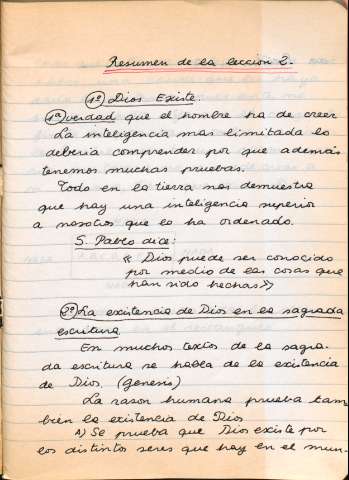 Resumen de la leccion 2.
1º Dios Existe.
1ª verdad que el hombre ha de creer
La inteligencia mas limitada lo
deberia comprender por que además
tenemos muchas pruebas.
Todo en la tierra nos demuestra
que hay una inteligencia superior
a nosotros que lo ha ordenado.
S. Pablo dice:
« Dios puede ser conocido
por medio de las cosas que
han sido hechas»
2º La existencia de Dios en la sagrada
escritura
En muchos textos de la sagra-
da escritura se habla de la existencia
de Dios. (genesis)
La rason humana prueba tam-
bién la existencia de Dios
A) Se prueba que Dios existe por
los distintos seres que hay en el mun-